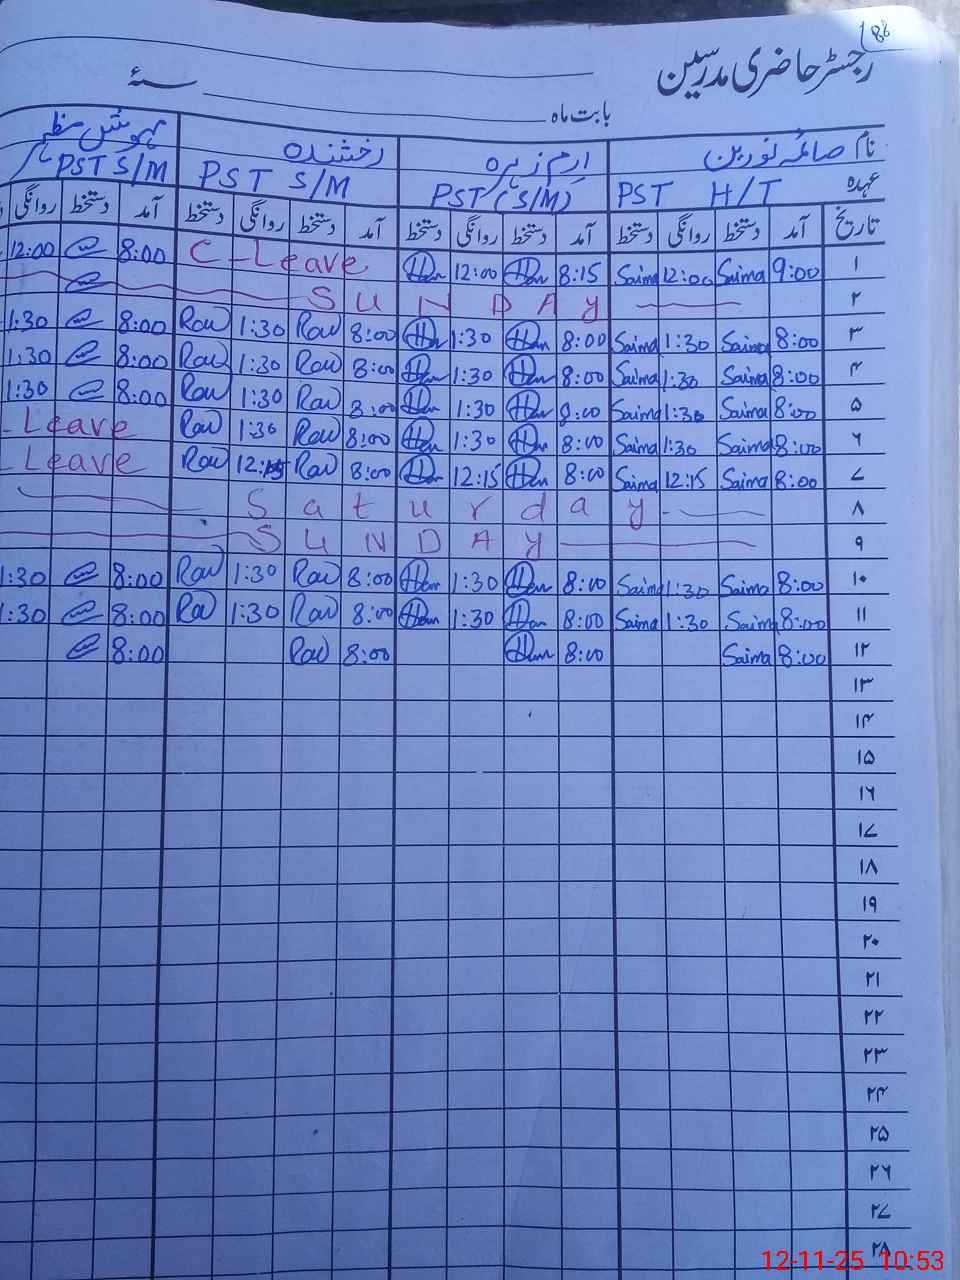 186
رجسٹر حاضری مدرسین
بابت ماہ ــــــــــــ سنۂ
نام صائمہ نورین ارم زہرہ رخشندہ مہوش مظہر
عہدہ PST H/T PST (S/M) PST S/M PST S/M
تاریخ آمد دستخط روانگی دستخط آمد دستخط روانگی دستخط آمد دستخط روانگی دستخط آمد دستخط روانگی
۱ 9:00 Saima 12:00 Saima 8:15 12:00 C-Leave 8:00 12:00
۲ SUNDAY
۳ 8:00 Saima 1:30 Saima 8:00 1:30 8:00 Rav 1:30 Rav 8:00 1:30
۴ 8:00 Saima 1:30 Saima 8:00 1:30 8:00 Rav 1:30 Rav 8:00 1:30
۵ 8:00 Saima 1:30 Saima 8:00 1:30 8:00 Rav 1:30 Rav 8:00 1:30
۶ 8:00 Saima 1:30 Saima 8:00 1:30 8:00 Rav 1:30 Rav Leave
۷ 8:00 Saima 12:15 Saima 8:00 12:15 8:00 Rav 12:15 Rav Leave
۸ Saturday
۹ SUNDAY
۱۰ 8:00 Saima 1:30 Saima 8:00 1:30 8:00 Rav 1:30 Rav 8:00 1:30
۱۱ 8:00 Saima 1:30 Saima 8:00 1:30 8:00 Rav 1:30 Rav 8:00 1:30
۱۲ 8:00 Saima 8:00 8:00 Rav 8:00
۱۳
۱۴
۱۵
۱۶
۱۷
۱۸
۱۹
۲۰
۲۱
۲۲
۲۳
۲۴
۲۵
۲۶
۲۷
۲۸
12-11-25 10:53